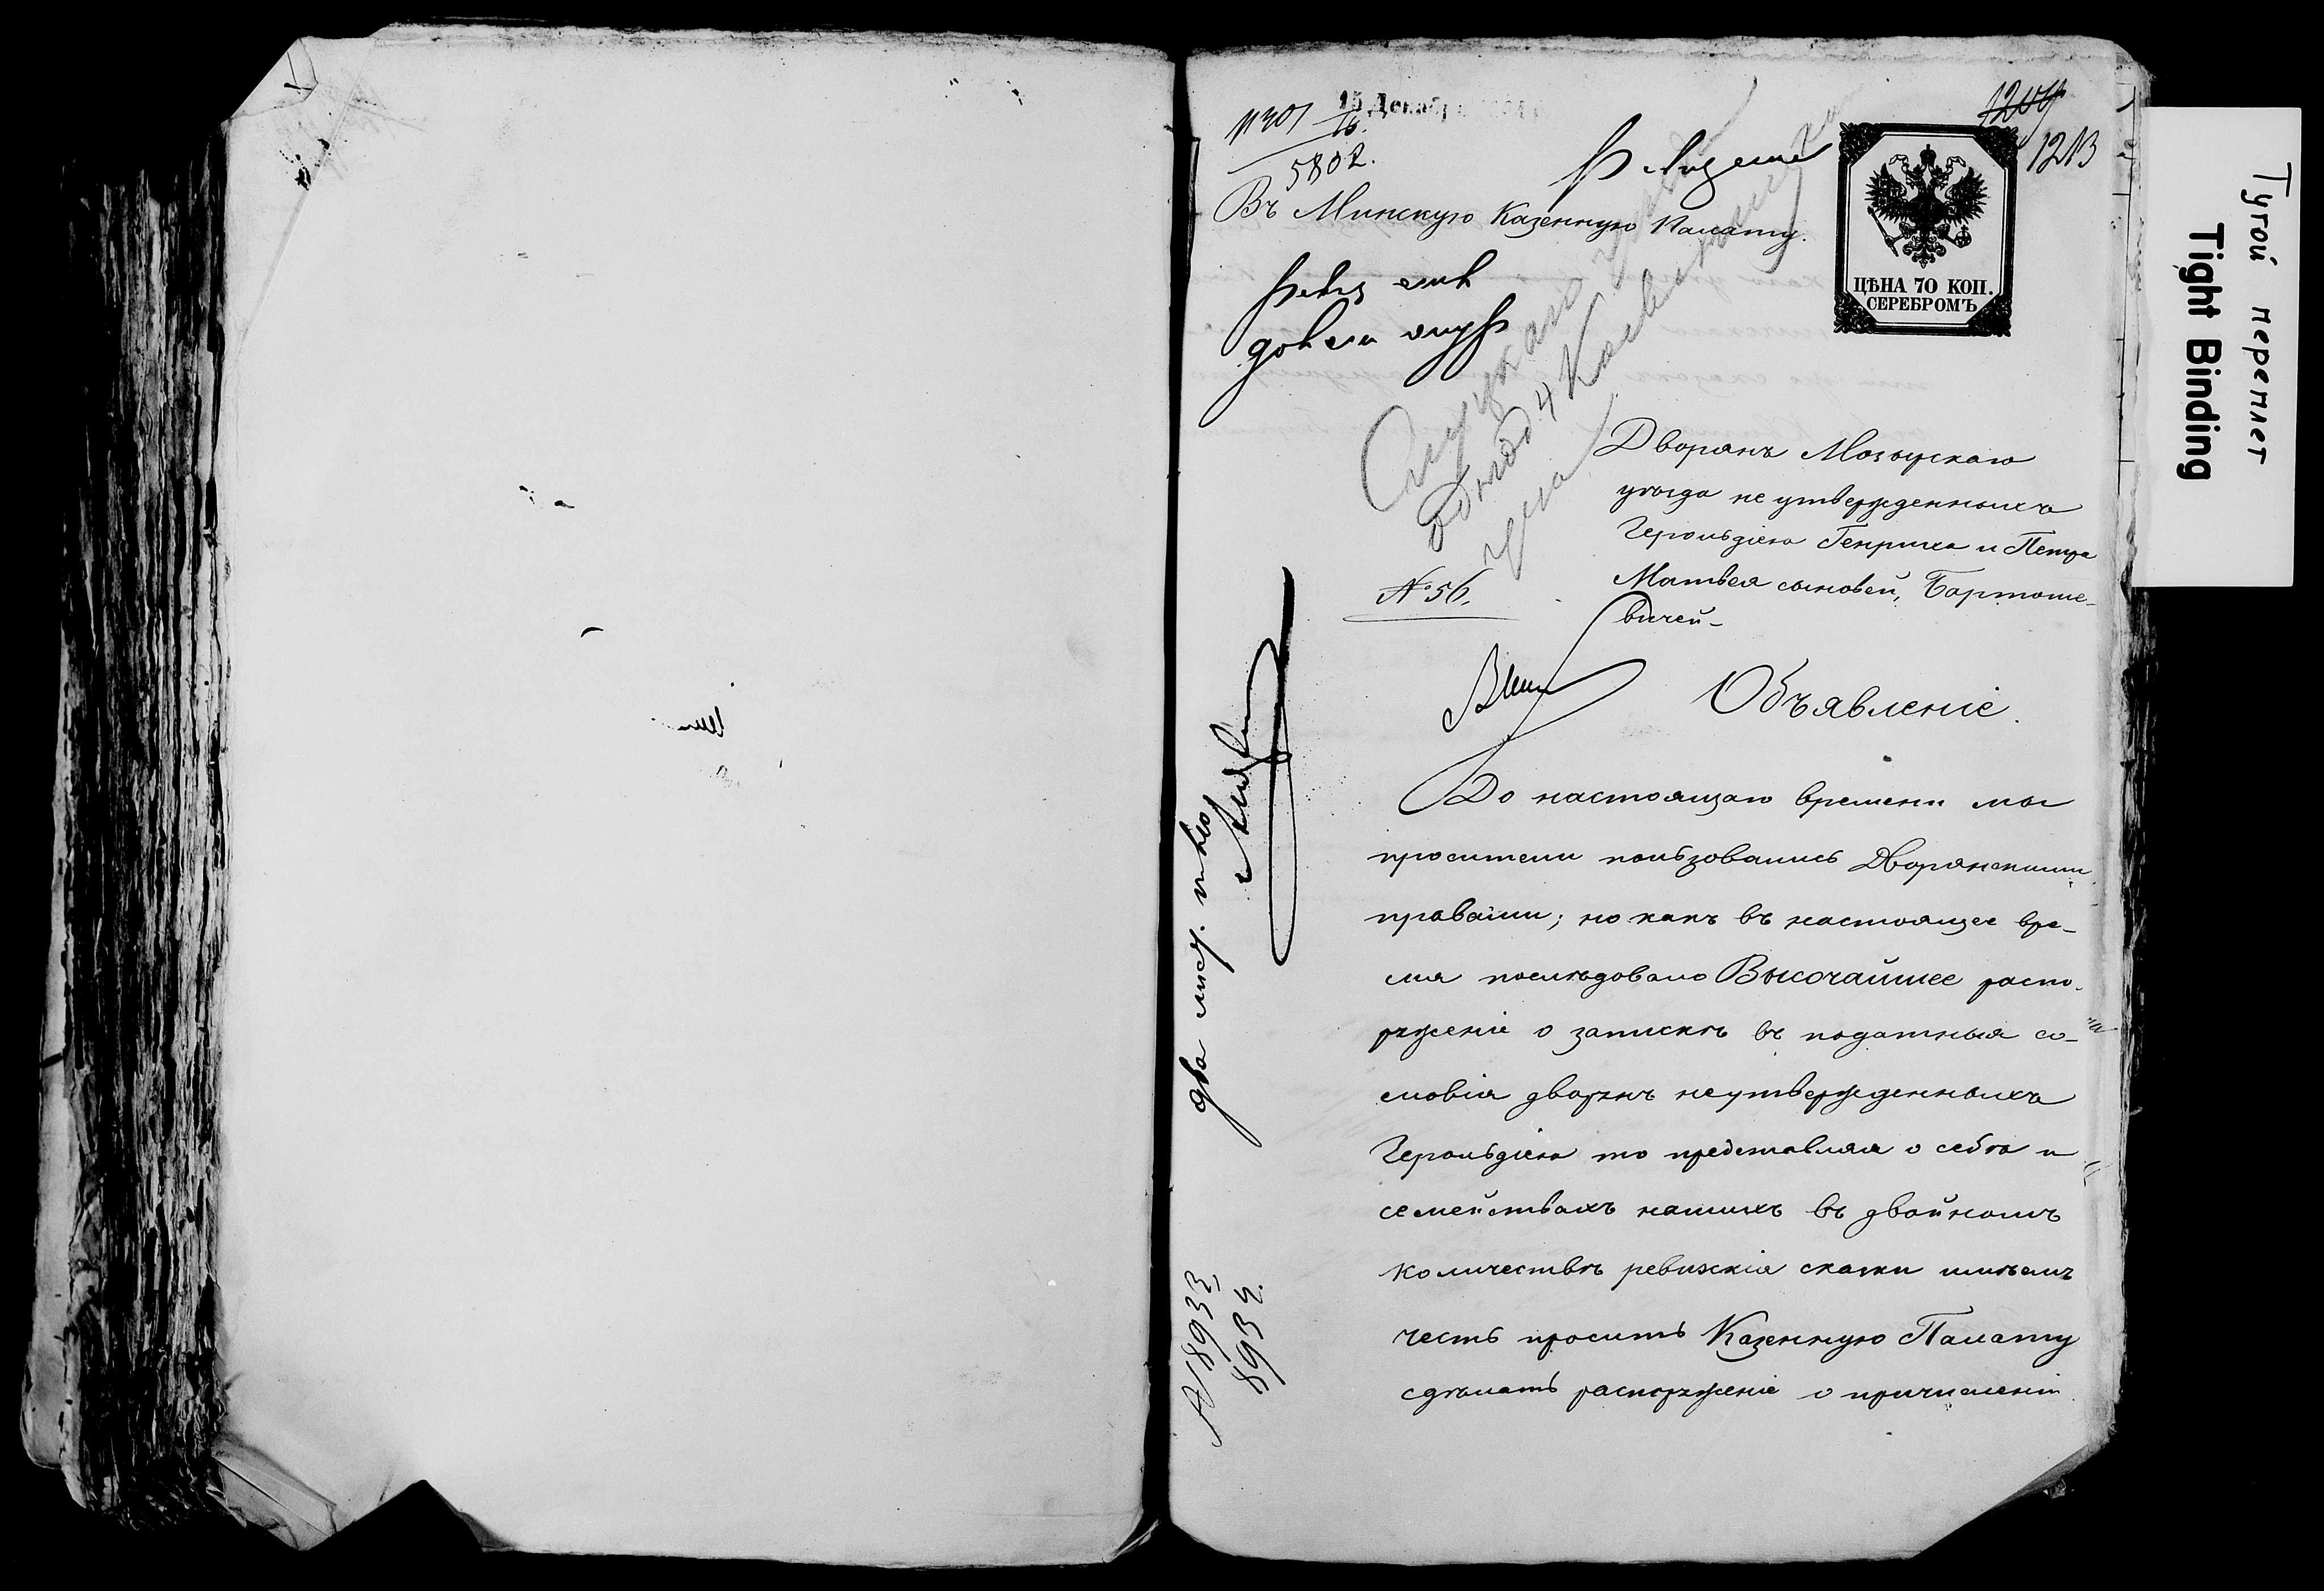 15 Декабр
1209
1213
5802.
Въ Минскую Казенную Палату.
ЦѢНА 70 КОП.
СЕРЕБРОМЪ
Тугой переплет
Tight Binding
Дворянъ Мозырскаго
уѣзда не утвержденныхъ
Герольдіею Генриха и Петра
Матвея сыновей, Бартоше-
вичей-
№ 56.
Объявленіе.
До настоящаго времени мы
просители пользовались Дворянскими
правами; но какъ въ настоящее вре-
мя послѣдовало Высочайшее распо-
ряженіе о запискѣ въ податныя со-
словія дворянъ неутвержденныхъ
Герольдіею то представляя о себѣ и
семействахъ нашихъ въ двойномъ
количествѣ ревизскія сказки имѣемъ
честь просить Казенную Палату
сдѣлать распоряженіе о причисленіи
два
№ 8933
8934.